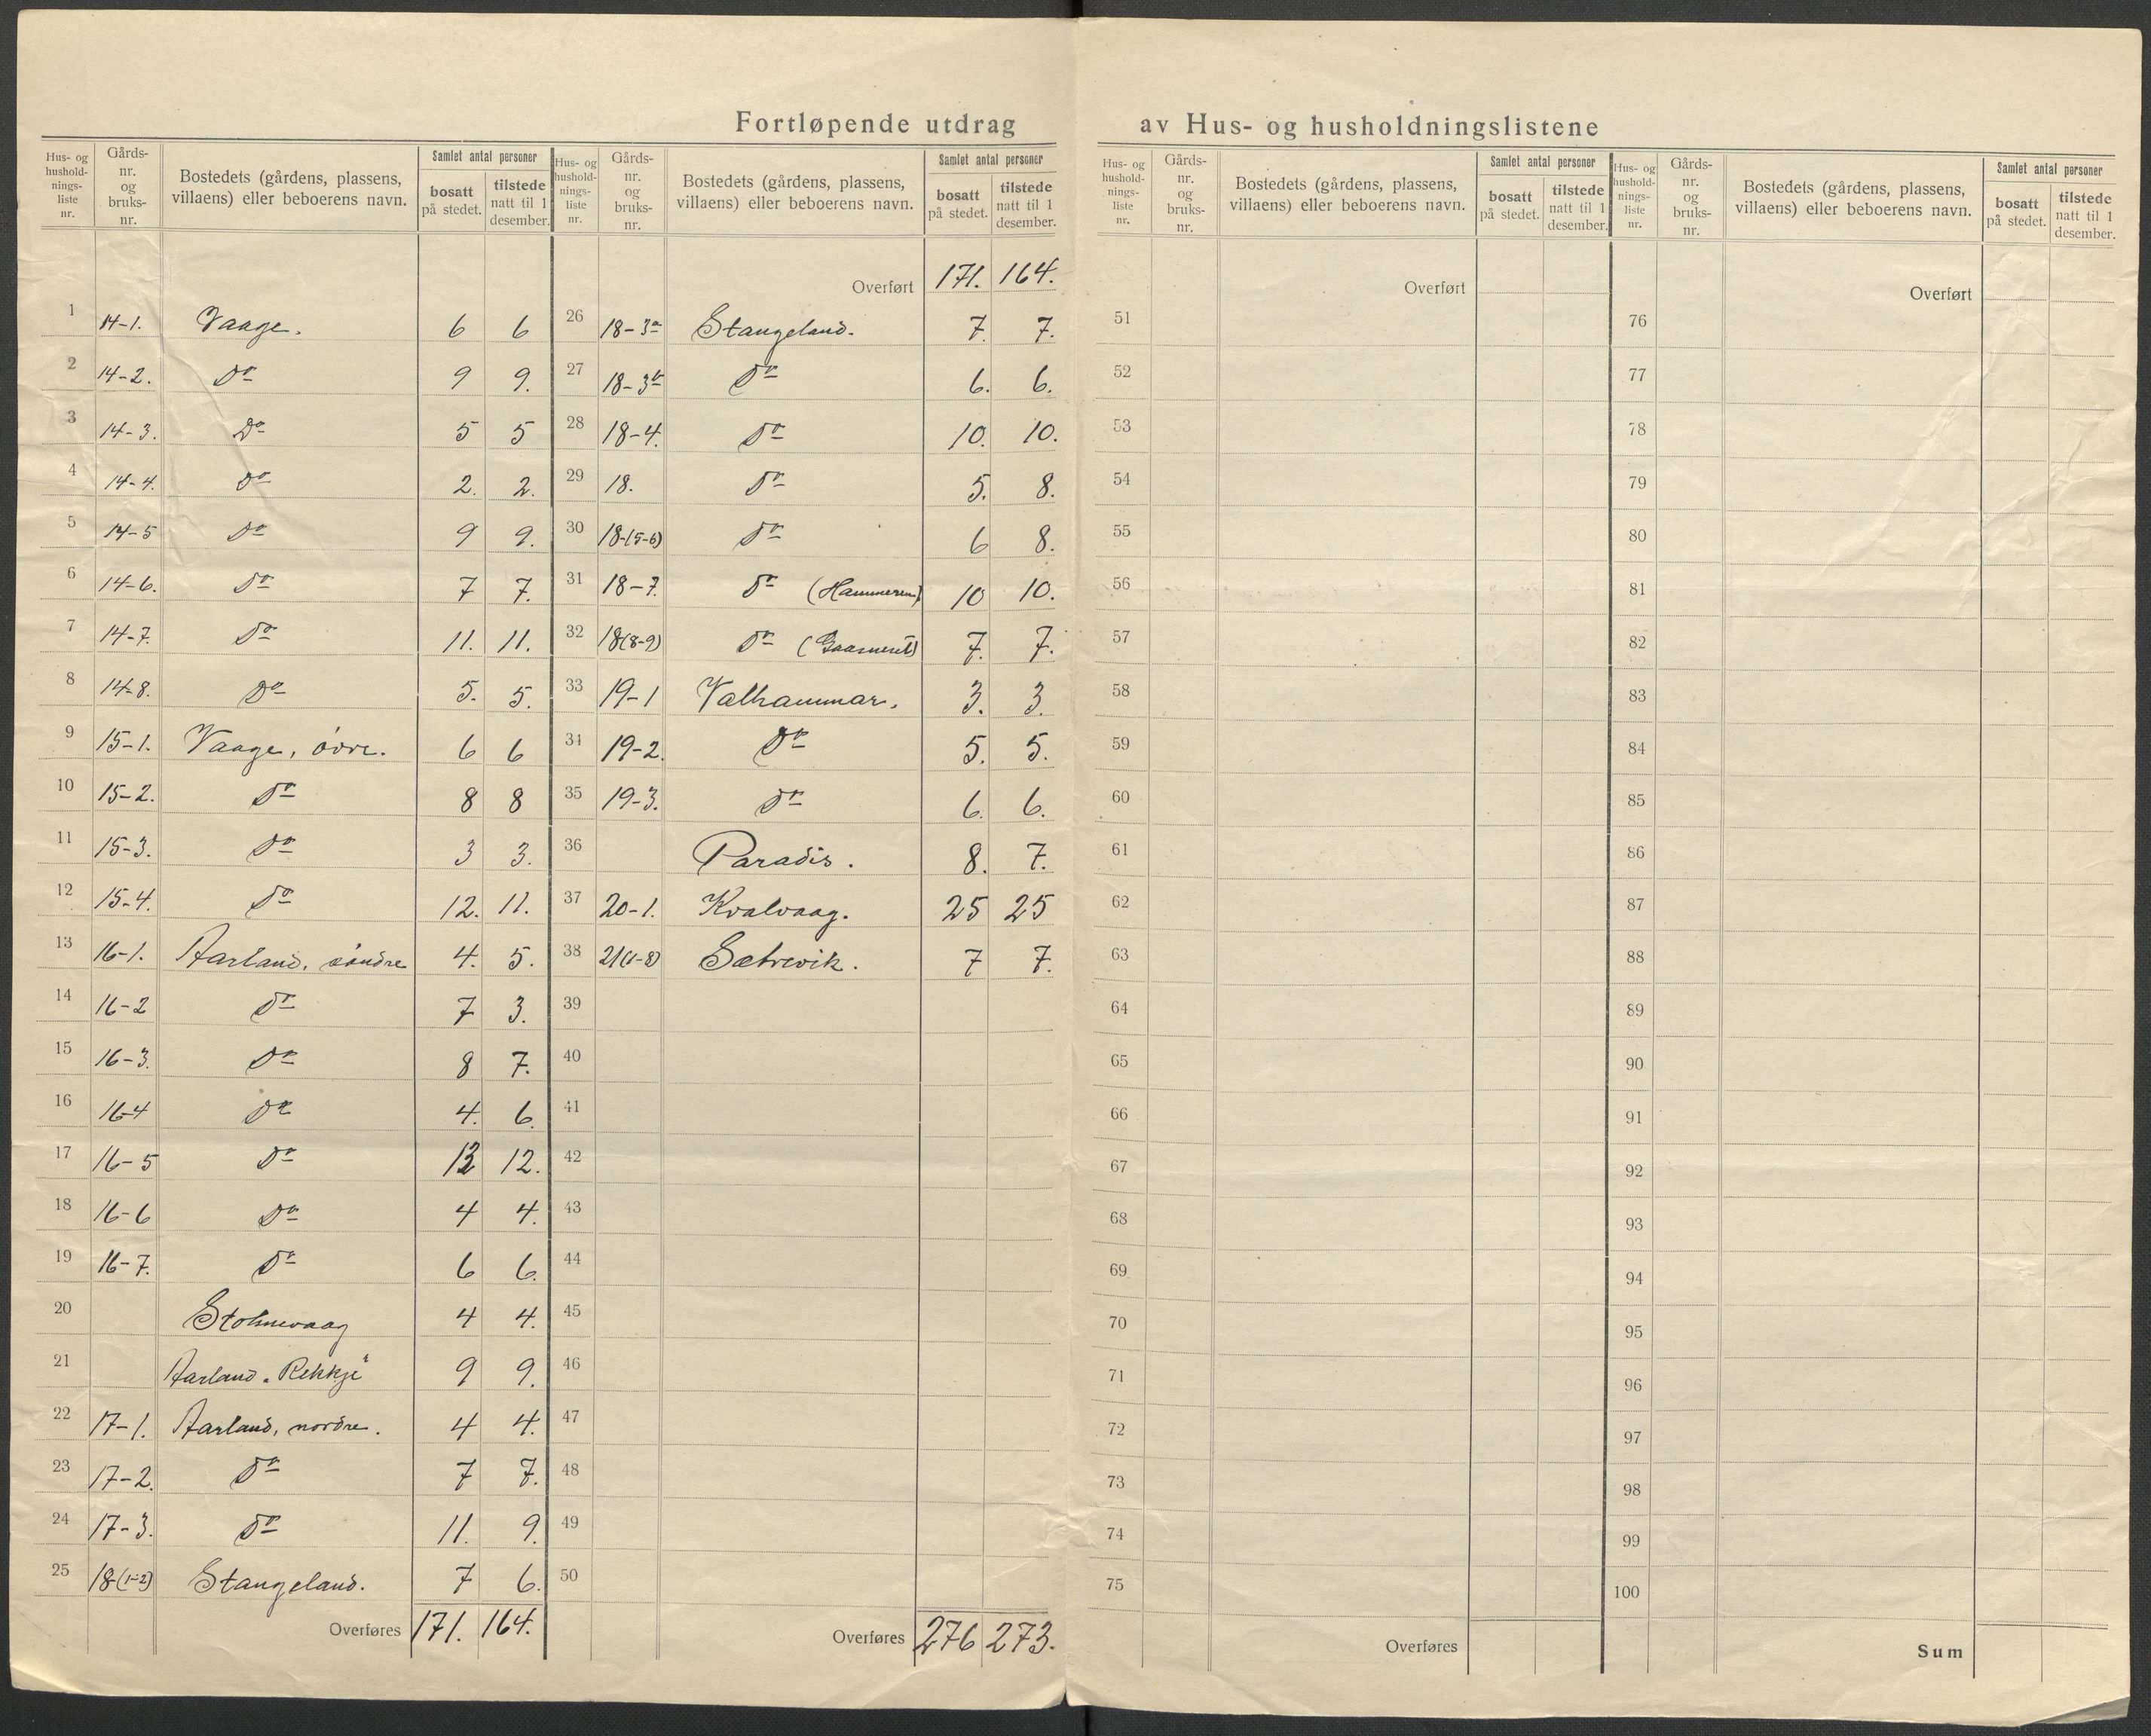 Fortløpende utdrag av Hus- og husholdningslistene
Hus- og husholdnings-liste nr. Gårds-nr. og bruks-nr. Bostedets (gårdens, plassens, villaens) eller beboerens navn. Samlet antal personer bosatt på stedet. tilstede natt til 1 desember.
1 14-1. Vaage. 6 6
2 14-2. Do 9 9.
3 14-3. Do 5 5
4 14-4. Do 2. 2.
5 14-5 Do 9 9.
6 14-6. Do 7 7.
7 14-7. Do 11. 11.
8 14-8. Do 5. 5.
9 15-1. Vaage, övre. 6 6
10 15-2. Do 8 8
11 15-3. Do 3 3.
12 15-4. Do 12. 11.
13 16-1. Aarland, söndre 4. 5.
14 16-2 Do 7 3.
15 16-3. Do 8 7.
16 16-4 Do 4. 6.
17 16-5 Do 13 12.
18 16-6 Do 4 4.
19 16-7. Do 6 6.
20 4 4.
21 Aarland "Rekkje" 9 9.
22 17-1. Aarland, nordre. 4 4.
23 17-2. Do 7 7.
24 17-3. Do 11. 9.
25 18-(1-2) Stangeland. 7 6.
Overføres 171. 164.
Hus- og husholdnings-liste nr. Gårds-nr. og bruks-nr. Bostedets (gårdens, plassens, villaens) eller beboerens navn. Samlet antal personer bosatt på stedet. tilstede natt til 1 desember.
Overført 171. 164.
26 18-3a Stangeland. 7. 7.
27 18-3b Do 6. 6.
28 18-4. Do 10. 10.
29 18. Do 5. 8.
30 18-(5-6) Do 6 8.
31 18-7. Do (Hammeren) 10 10.
32 18(8-9) Do 7. 7.
33 19-1 Valhammar. 3. 3.
34 19-2. Do 5. 5.
35 19-3. Do 6. 6.
36 Paradis. 8. 7.
37 20-1. Kvalvaag. 25 25
38 21(1-8) Sætrevik. 7 7.
39
40
41
42
43
44
45
46
47
48
49
50
Overføres 276 273.
Hus- og hushold-nings-liste nr. Gårds-nr. og bruks-nr. Bostedets (gårdens, plassens, villaens) eller beboerens navn. Samlet antal personer bosatt på stedet. tilstede natt til 1 desember.
Overført
51
52
53
54
55
56
57
58
59
60
61
62
63
64
65
66
67
68
69
70
71
72
73
74
75
Overføres
Hus- og hushold-nings-liste nr. Gårds-nr. og bruks-nr. Bostedets (gårdens, plassens, villaens) eller beboerens navn. Samlet antal personer bosatt på stedet. tilstede natt til 1 desember.
Overført
76
77
78
79
80
81
82
83
84
85
86
87
88
89
90
91
92
93
94
95
96
97
98
99
100
Sum